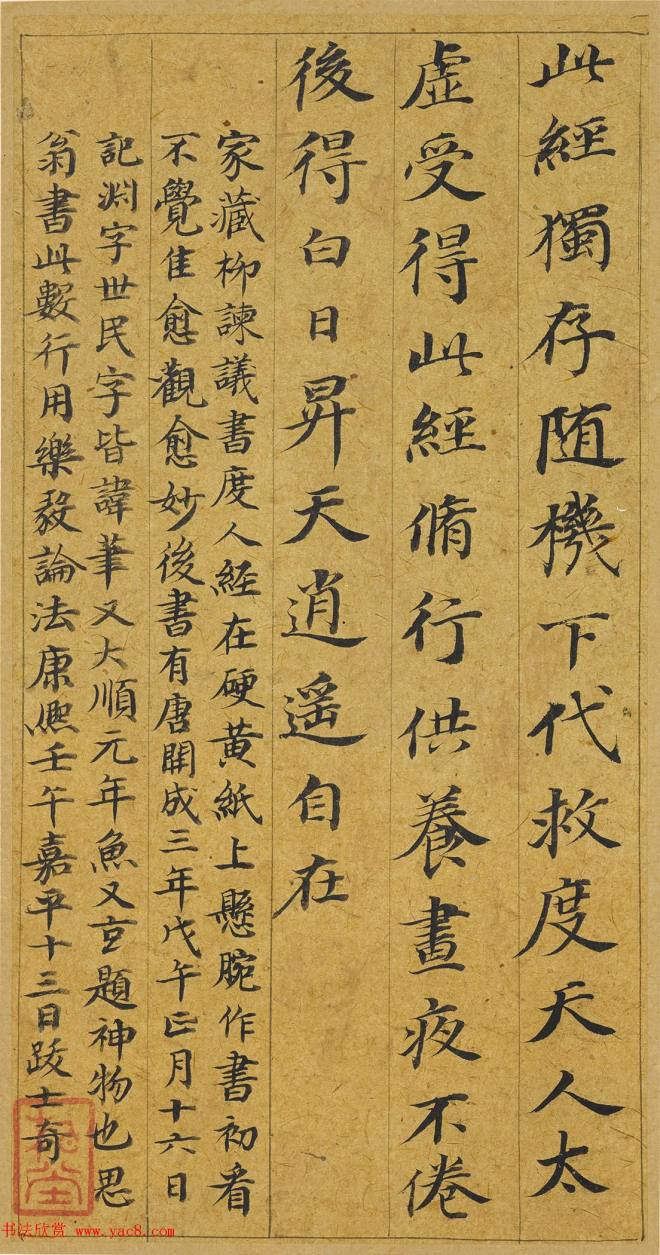 此經獨存随機下代救度天人太
虛受得此經脩行供養晝夜不倦
後得白日昇天逍遥自在
家藏柳諫議書度人經在硬黃紙上懸腕作書初看
不覺佳愈觀愈妙後書有唐開成三年戊午正月十六日
記渊字世民字皆諱筆又大順元年魚又玄題神物也思
翁書此數行用樂毅論法康熙壬午嘉平十三日跋士奇
书法欣赏 www.yac8.com